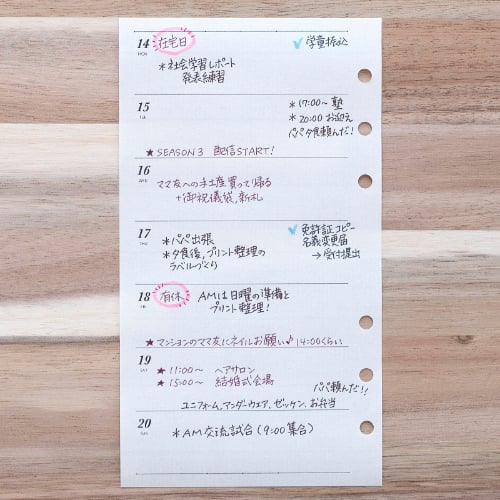 14 在宅日 ✓学童振込
MON
*社会学習レポート
発表練習
15 *17:00〜 塾
TUE *20:00 お迎え
パパ夕食頼んだ!
★SEASON3 配信START!
16
WED ママ友への手土産買って帰る
+御祝儀袋、新札
17 ✓免許証コピー
THU *パパ出張 名義変更届
*夕食後、プリント整理の →受付提出
ラベルづくり
18 有休 AMは日曜の準備と
FRI プリント整理!
★マンションのママ友にネイルお願い♪ 14:00くらい
19 ★11:00〜 ヘアサロン
SAT ★15:00〜 結婚式会場
パパ頼んだ!!
ユニフォーム、アンダーウエア、ゼッケン、お弁当
20 *AM交流試合(9:00集合)
SUN